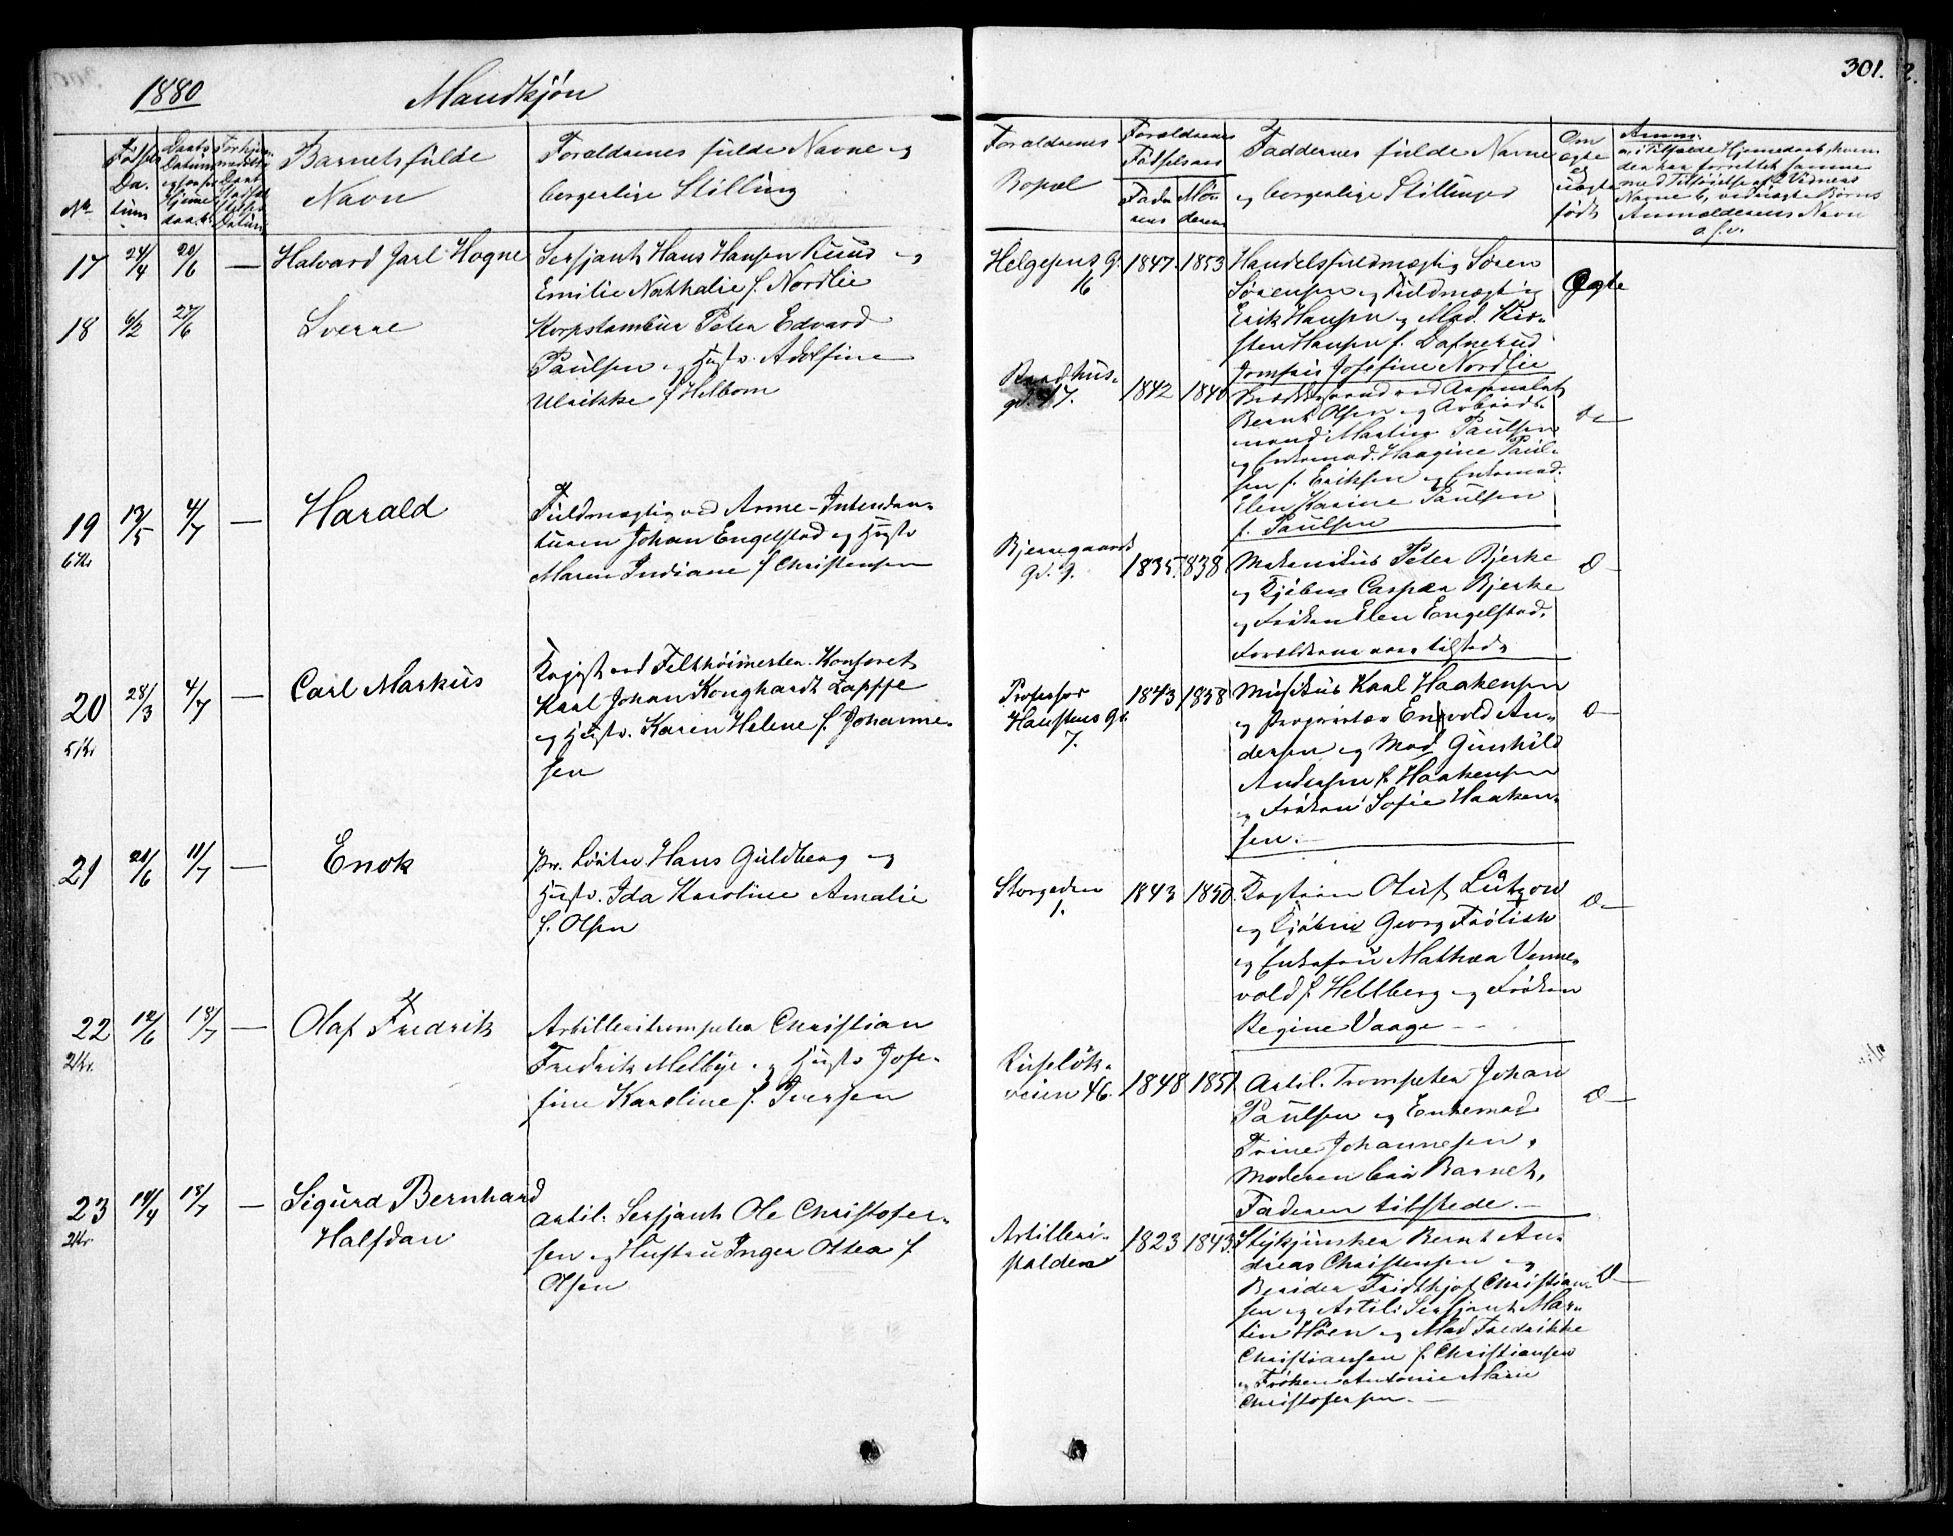 1880
Mandkjøn
301.
No.
Fødsels
Da-
tum
Daabs
Datum
Barnets fulde
Navn
Forældrenes fulde Navne og
borgerlige Stilling
Forældrenes
Bopæl
Forældrenes
Fødselsaar
Fade-
rens
Mo-
derens
Faddernes fulde Navne
og borgerlige Stillinger
Om
ægte
el.
uægte
født
Anm.
17 24/4 20/6 — Halvard Jarl Hogne
Sersjant Hans Hansen Ruud og
Emilie Nathalie f. Nordlie
Helgesens G. 1847. 1853
16
Handelsfuldmægtig Søren
Sørensen og Fuldmægtig
Erik Hansen og Mad. Kir-
sten Hansen f. Dafnerud
Jomfru Josefine Nordlie
Ægte
18 6/2 27/6 Sverre
Korpstambur Peter Edvard
Paulsen og Hustr. Adolfine
Ulrikke f. Helbom
Raadhus-
gd. 47. 1842 1840
ved Arsenalet
Bernt Olsen og Arbeids-
mand Martin Paulsen
og Enkemad. Haagine Paul-
sen f. Eriksen og Enkemad.
Elen Karine Paulsen
f. Paulsen
do —
19 13/5 4/7 — Harald
6 Kr
Fuldmægtig ved Arme-Intendan-
turen Johan Engelstad og Hustr
Maren Indiane f. Christensen
Bjerregaards
Gd. 9. 1835. 1838
Peter Bjerke
og Kjøbm Casper Bjerke
og Frøken Elen Engelstad,
Forældrene vare tilstede
do —
20 28/3 4/7 — Carl Markus
5 Kr
ved Felthøimester-Kontoret
Karl Johan Konghardt Lappe
og Hustr. Karen Helene f. Johanne-
sen
Professor
Hanstens Gd.
7. 1843 1858
Musikus Karl Haakensen
og Proprietær Engvold An-
dersen og Mad Gunhild
Andersen f. Haakensen
og Frøken Sofie Haaken-
sen. —
do —
21 21/6 11/7 — Enok
Pr. Løitn. Hans Guldberg og
Hustr. Ida Karoline Amalie
f. Olsen
Storgaden
1. 1843 1850
Kaptein Oluf Lützow
og Kjøbm Georg Frölich
og Enkefru Mathea Venne-
vold f. Hellberg og Frøken
Regine Vaage — —
do —
22 12/6 18/7 — Olaf Fredrik
2 Kr.
Artilleritrompeter Christian
Fredrik Melbye og Hustr Jose-
fine Karoline f. Iversen
Ruseløk-
veien 46. 1848 1851
Artil. Trompeter Johan
Paulsen og Enkemad
Trine Johannesen,
Moderen bar Barnet,
Faderen tilstede. —
do —
23 14/4 18/7 — Sigurd Bernhard
2 Kr
Halfdan
Artil. Sersjant Ole Christofer-
sen og Hustru Inger Ottea f.
Olsen
Artilleri-
stalden 1823 1843
Stykjunker Bernt An-
dreas Christensen og
Berider Fridthjof Christian-
sen og Artil. Sersjant Mar-
tin Høen og Mad Fredrikke
Christiansen f. Christiansen
og Frøken Antonie Marie
Christofersen. —
do —